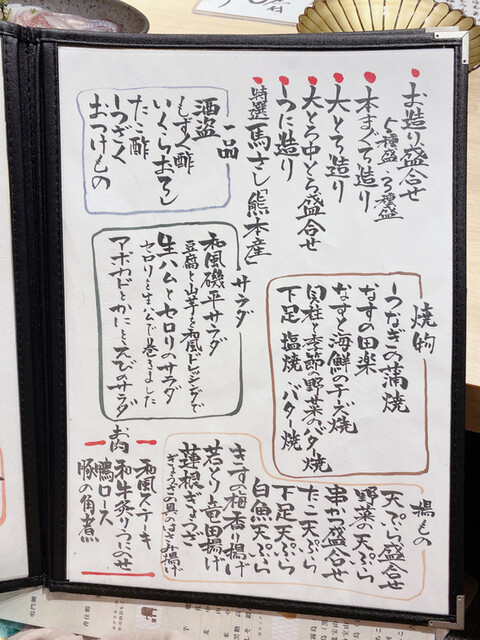 お造り盛合せ
5種盛・3種盛
本まぐろ造り
大とろ造り
大とろ中とろ盛合せ
うに造り
特選 馬さし「熊本産」
一品
酒盗
もずく酢
いくらおろし
たこ酢
うざく
おつけもの
焼物
うなぎの蒲焼
なすの田楽
なすと海鮮のチーズ焼
貝柱と季節の野菜のバター焼
下足 塩焼 バター焼
サラダ
和風磯平サラダ
豆腐と山芋と和風ドレッシングで
生ハムとセロリのサラダ
セロリを生ハムで巻きました
アボカドとかにとえびのサラダ
揚もの
天ぷら盛合せ
野菜の天ぷら
串かつ盛合せ
たこ天ぷら
下足天ぷら
白魚天ぷら
きすの梅香り揚げ
若どり竜田揚げ
蓮根ぎょうざ
ぎょうざの具のはさみ揚げ
お肉
和風ステーキ
和牛炙りうにのせ
鴨ロース
豚の角煮